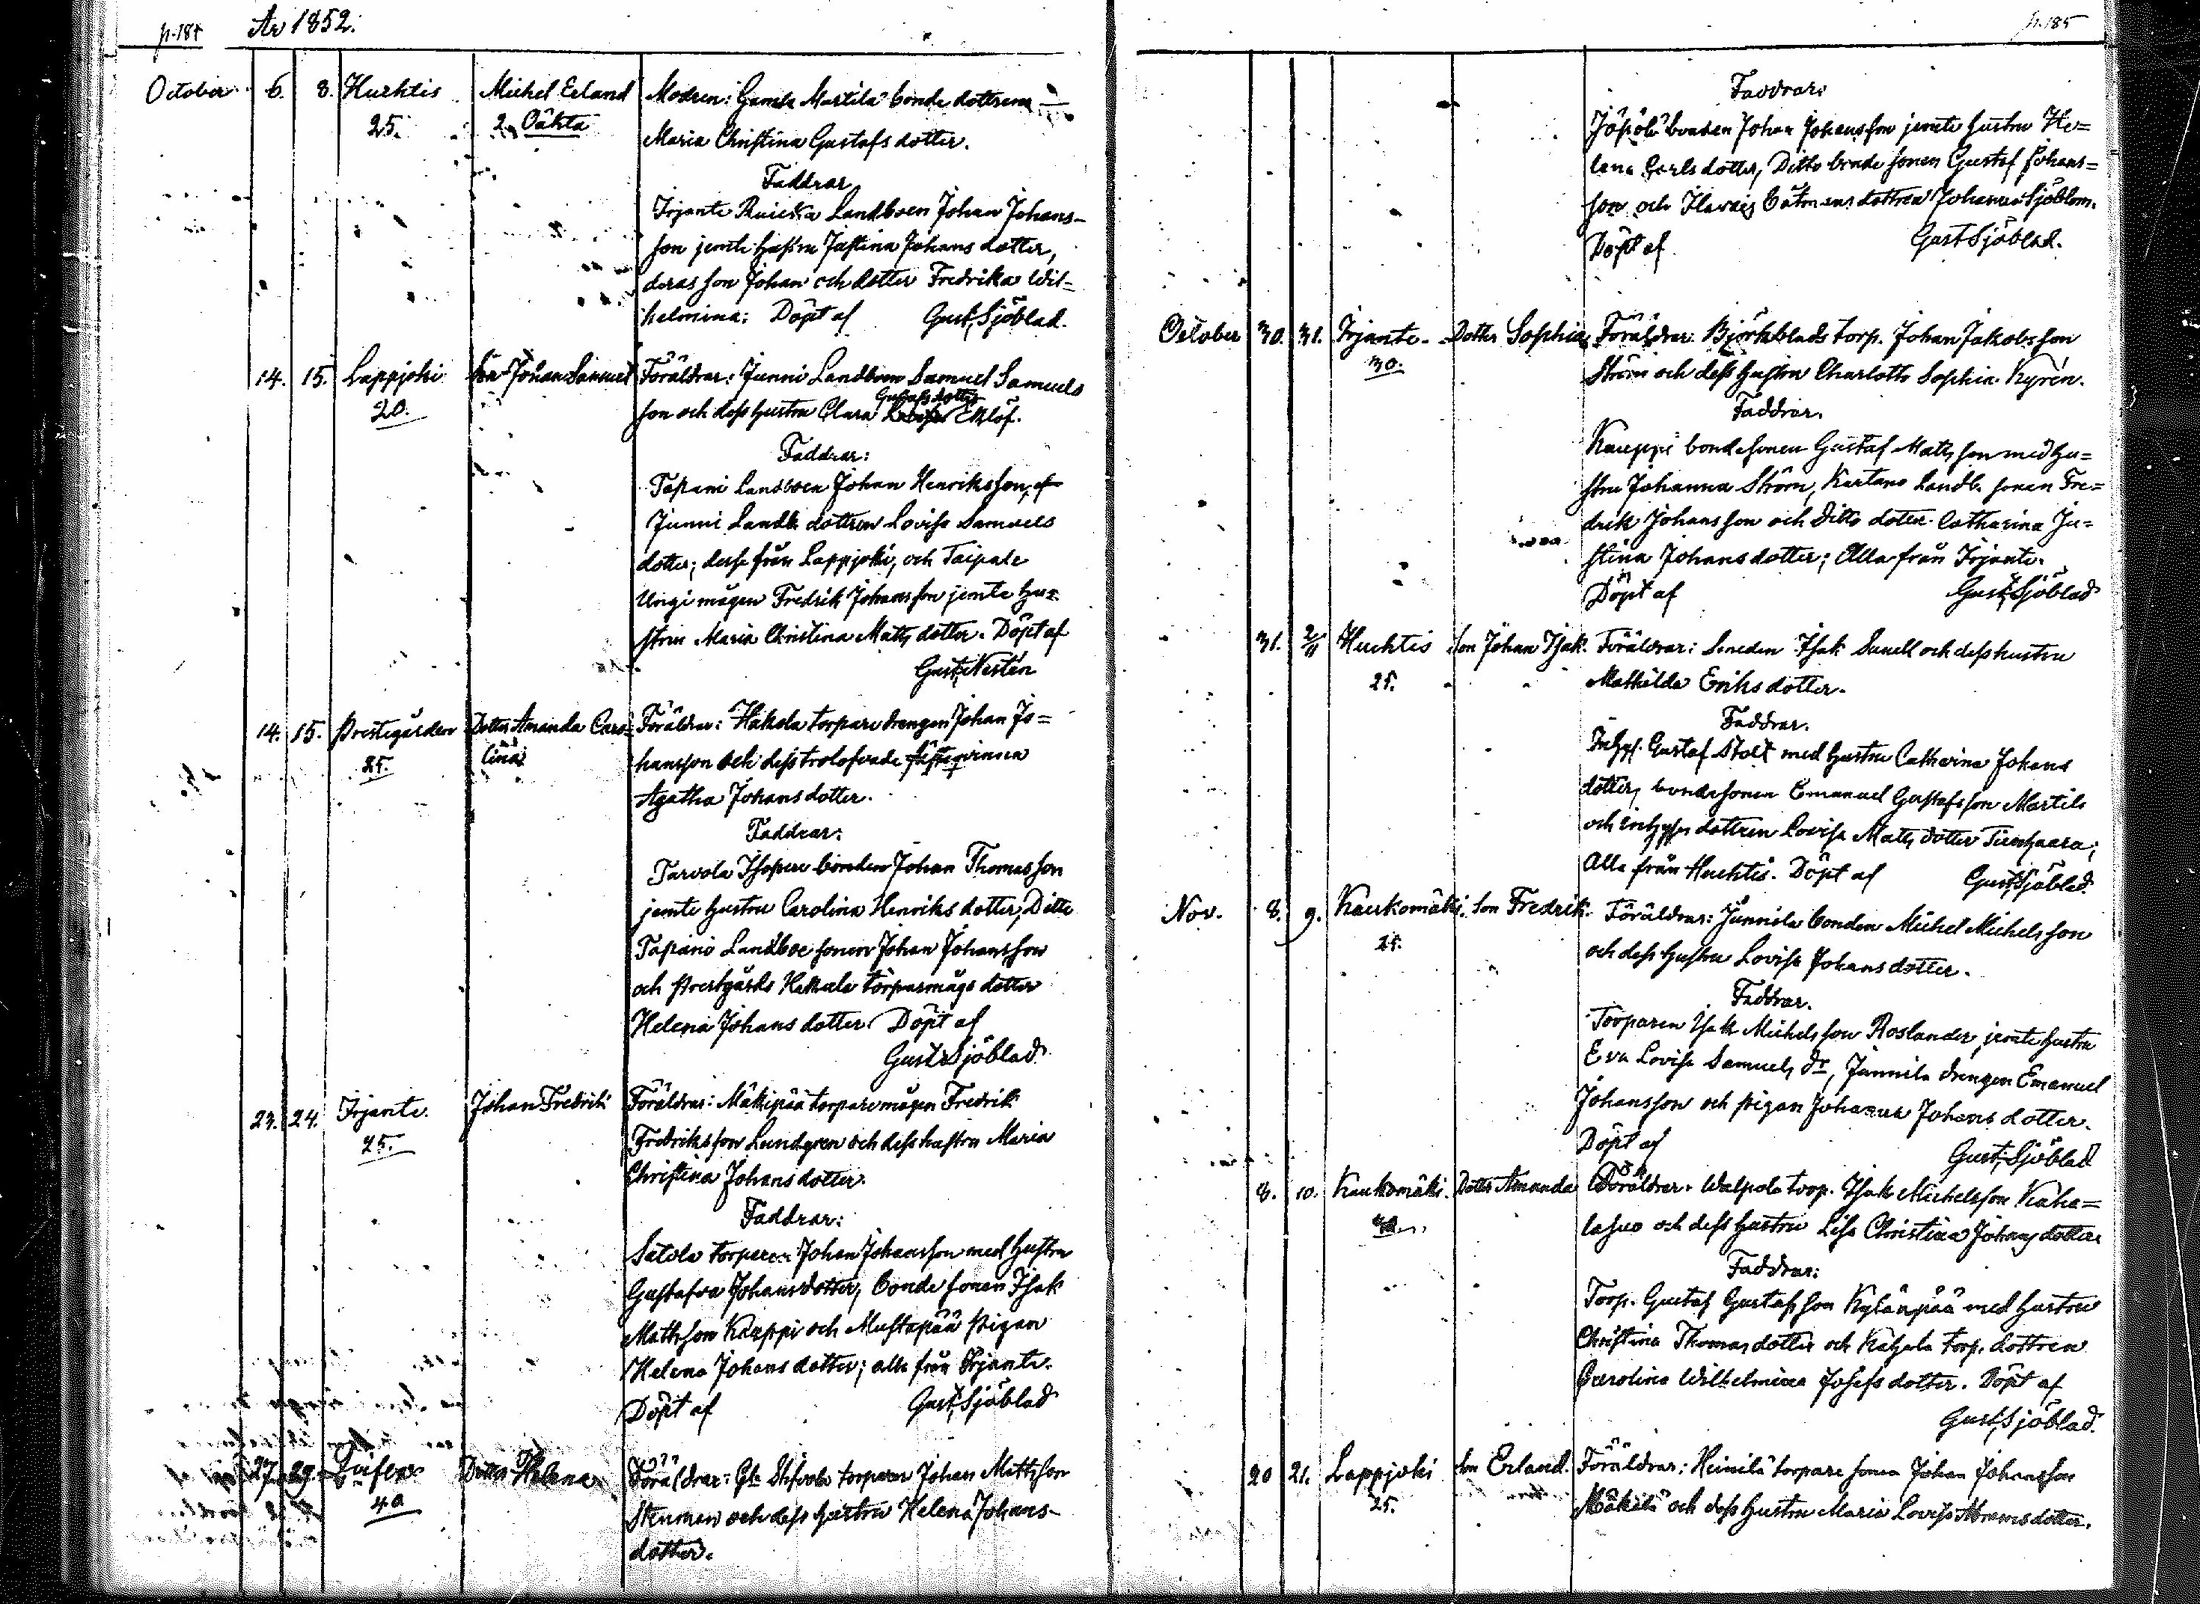 p. 184 År 1852.
October 6. 8. Huhtis Michel Erland Modren: Gamla Martila bonde dottren
25. 2. Oäkta Maria Christina Gustafs dotter.
Faddrar
Irjante Landboen Johan Johans-
son jemte hustru Justina Johans dotter,
deras son Johan och dotter Fredrika Wil=
helmina; Döpt af Gust. Sjöblad.
14. 15. Lappjoki Son Johan Samuel Föräldrar: Junni Landboen Samuel Samuels
20. son och dess hustru Clara Gustafs dotter Eklöf.
Faddrar:
Tapani Landboen Johan Henriksson,
Junni Landb. dottren Lovisa Samuels
dotter; desse från Lappjoki, och Taipale
Ungi mågen Fredrik Johansson jemte hu=
stru Maria Christina Mats dotter. Döpt af
Gust. Nestén
14. 15. Prestegården Dotter Amanda Caro= Föräldrar: Hakola torpare drengen Johan Jo=
25. lina hansson och dess trolofvade fästeqvinna
Agatha Johans dotter.
Faddrar:
Tarvola bonden Johan Thomasson
jemte hustru Carolina Henriks dotter, Ditto
Tapani Landboe sonen Johan Johansson
och Prestgårds Hakula torparmågs dotter
Helena Johans dotter. Döpt af
Gust. Sjöblad.
23. 24. Irjante. Johan Fredrik Föräldrar: Mäkipää torpare mågen Fredrik
25. Fredriksson Lundgren och dess hustru Maria
Christina Johans dotter.
Faddrar:
Satola torparen Johan Johansson med hustru
Gustafva Johansdotter, bonde sonen Isak
Matsson Kauppi och Mustapää pigan
Helena Johans dotter; alla från Irjante.
Döpt af Gust. Sjöblad
27. 29. Dotter Helena Föräldrar: torparen Johan Matsson
40. och dess hustru Helena Johans-
dotter.
p. 185
Faddrar:
bonden Johan Johansson jemte hustru He=
lena Carls dotter, Ditto bonde sonen Gustaf Johans=
son och dottren Johanna Sjöblom.
Döpt af Gust. Sjöblad.
October 30. 31. Irjante. Dotter Sophia Föräldrar: Björkblads torp. Johan Jakobsson
30. Ström och dess hustru Charlotta Sophia Kyrén.
Faddrar.
Kauppi bondesonen Gustaf Matsson med hu=
stru Johanna Ström, Kartano Landb. sonen Fre=
drik Johansson och Ditto dotter Catharina Ju=
stina Johans dotter; Alla från Irjante.
Döpt af Gust. Sjöblad
31. 2/11 Huhtis Son Johan Isak. Föräldrar: Smeden Isak Sunell och dess hustru
25. Mathilda Eriks dotter.
Faddrar.
Inhys. Gustaf Stolt med hustru Catharina Johans
dotter, bondesonen Emanuel Gustafsson Martila
och inhyses dottren Lovisa Mats dotter;
Alla från Huhtis. Döpt af Gust. Sjöblad.
Nov. 8. 9. Kaukomäki. Son Fredrik. Föräldrar: Junnila bonden Michel Michelsson
25. och dess hustru Lovisa Johans dotter.
Faddrar.
Torparen Isak Michelsson Roslander, jemte hustru
Eva Lovisa Samuels dr, Junnila drengen Emanuel
Johansson och pigan Johanna Johans dotter.
Döpt af Gust. Sjöblad
8. 10. Kaukomäki. Dotter Amanda Föräldrar. Walpola torp. Isak Michelsson Kaha=
lasuo och dess hustru Lisa Christina Johans dotter.
Faddrar:
Torp. Gustaf Gustafsson Kylänpää med hustru
Christina Thomas dotter och torp. dottren
Carolina Wilhelmina Josefs dotter. Döpt af
Gust. Sjöblad.
20 21. Lappjoki Son Erland. Föräldrar: Heinilä torpare sonen Johan Johansson
25. Mäkelä och dess hustru Maria Lovisa dotter.